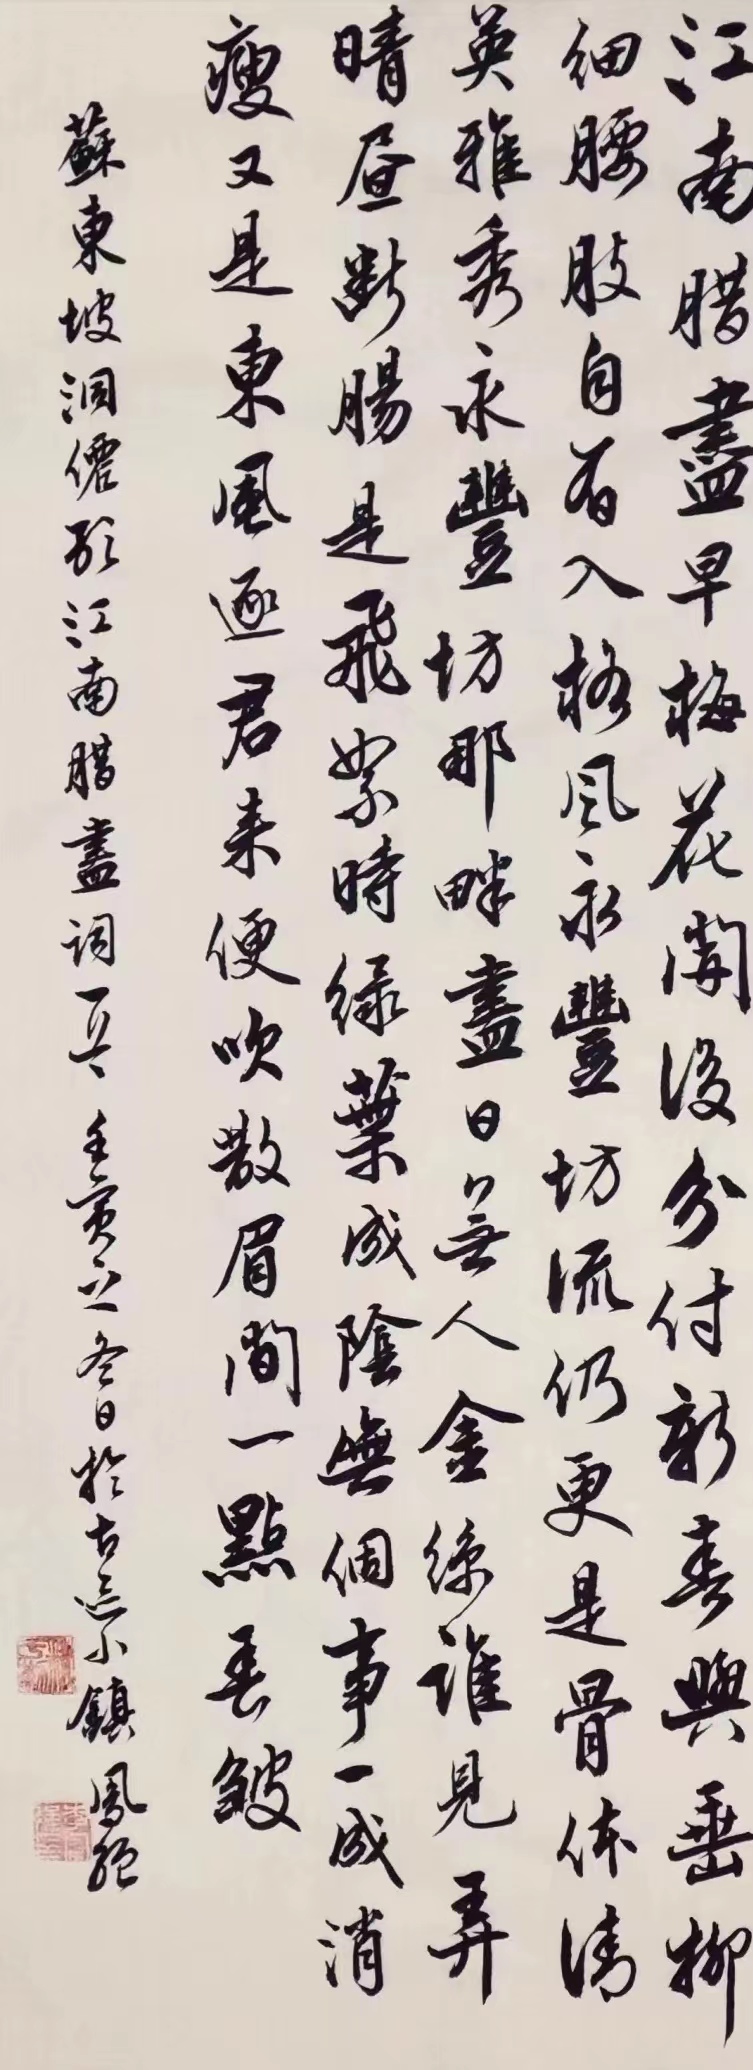 江南腊盡早梅花開後分付新春與垂柳
細腰肢自有入格风永豐坊流仍更是骨体清
英雅秀永豐坊那畔盡日無人金絲誰見弄
晴昼断腸是飛絮時緑葉成陰無個事一成消
瘦又是東風逐君来便吹散眉間一點春皺
蘇東坡洞僊歌江南腊盡詞一首壬寅之冬日於古小鎮鳳